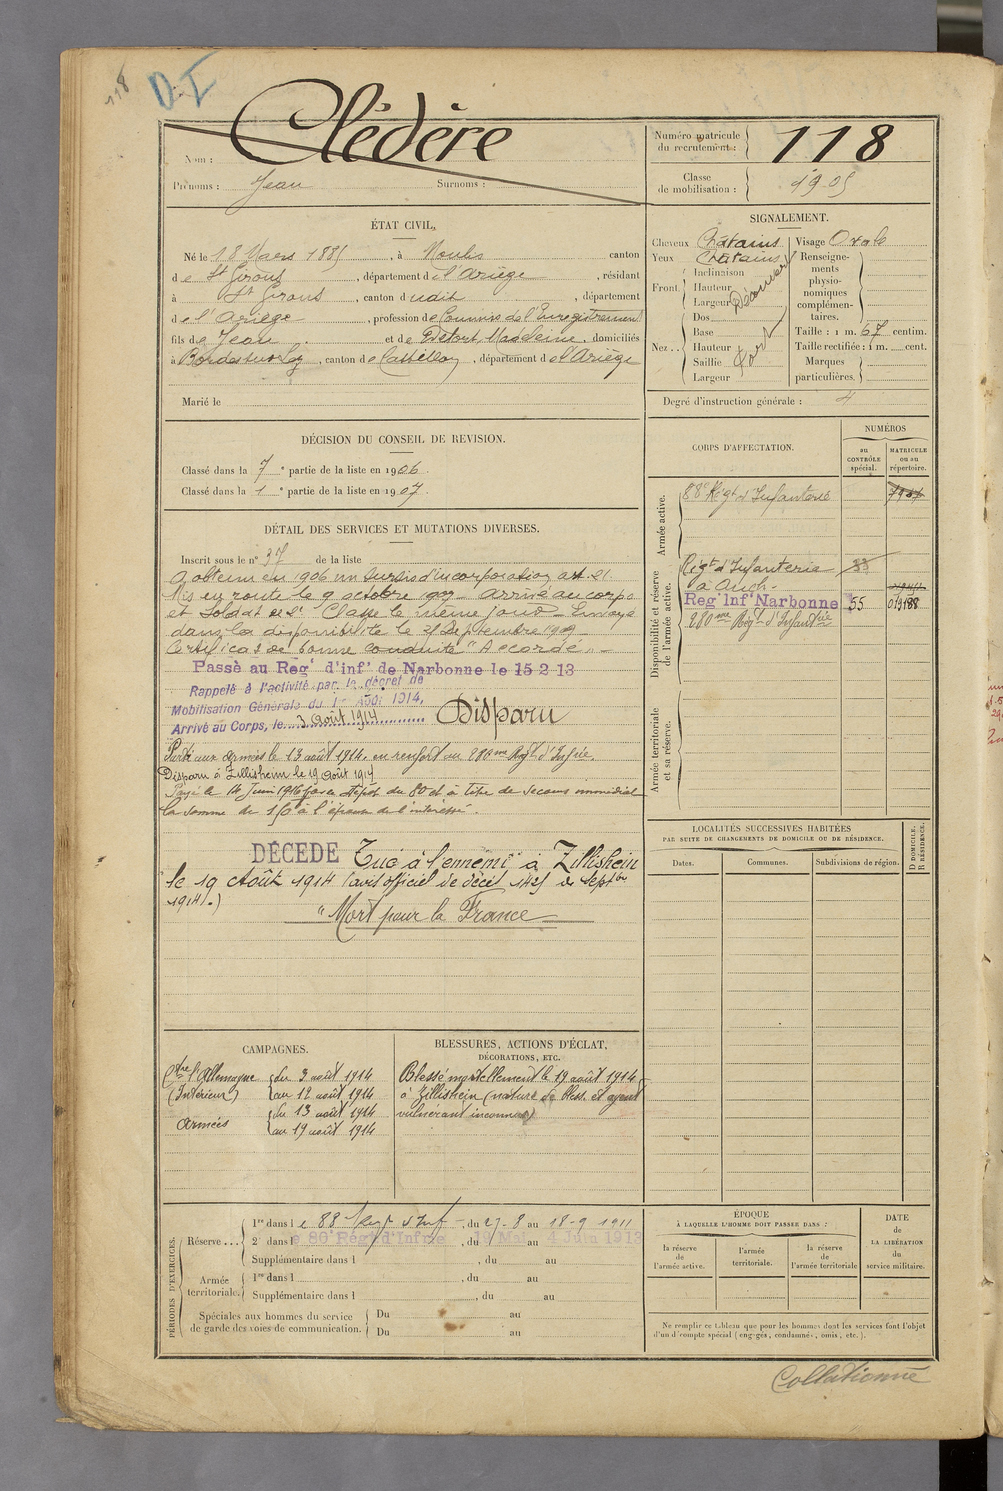 118
D.I
Clédère
Nom :
Prénoms : Jean Surnoms :
Numéro matricule
du recrutement : 118
Classe
de mobilisation : 1905
ÉTAT CIVIL.
Né le 18 Mars 1885, à Moulis canton
de St Girons, département de l'Ariège, résidant
à St Girons, canton dudit, département
de l'Ariège, profession de Commis de l'Enregistrement
fils de Jean et de Détort, Madeleine, domiciliés
à Bordes sur Lez, canton de Castillon, département de l'Ariège
Marié le
SIGNALEMENT.
Cheveux Châtains
Yeux Châtains
Front. Inclinaison
Hauteur
Largeur Découvert
Nez .. Dos
Base
Hauteur
Saillie fort
Largeur
Visage Ovale
Renseigne-
ments
physio-
nomiques
complémen-
taires.
Taille : 1 m. 67 centim.
Taille rectifiée : 1 m. cent.
Marques
particulières.
Degré d'instruction générale : 4
DÉCISION DU CONSEIL DE REVISION.
Classé dans la 7e partie de la liste en 1906.
Classé dans la 1e partie de la liste en 1907.
DÉTAIL DES SERVICES ET MUTATIONS DIVERSES.
Inscrit sous le n° 37 de la liste
A obtenu en 1906 un sursis d'incorporation art. 21.
Mis en route le 9 octobre 1907 Arrivé au corps
et Soldat de 2e Classe le même jour - Envoyé
dans la disponibilité le 25 Septembre 1909
Certificat de bonne conduite "Accordé" -
Passé au Regt d'inft de Narbonne le 15 2 13
Rappelé à l'activité par le décret de
Mobilisation Générale du 1er Août 1914,
Arrivé au Corps, le 3 Août 1914
Disparu
Parti aux armées le 13 août 1914, en renfort au 280me Regt d'Infrie.
Disparu à Zillisheim le 19 Août 1914
Payé le 14 Juin 1916 par le dépôt du 80 et à titre de secours immédiat
la somme de 150f à l'épouse de l'intéressé.
DÉCEDE Tué à l'ennemi à Zillisheim
le 19 Août 1914 (avis officiel de décès 1425 de Septbre
1914.)
"Mort pour la France
CORPS D'AFFECTATION.
NUMÉROS
au
CONTRÔLE
spécial.
MATRICULE
ou au
répertoire.
Armée active.
88e Régt d'Infanterie
Disponibilité et réserve
de l'armée active.
Régt d'Infanterie
à Auch -
Reg Inf Narbonne 55
280me Régt d'Infantie
Armée territoriale
et sa réserve.
LOCALITÉS SUCCESSIVES HABITÉES
PAR SUITE DE CHANGEMENTS DE DOMICILE OU DE RÉSIDENCE.
Dates. Communes. Subdivisions de région.
D DOMICILE.
R RÉSIDENCE.
CAMPAGNES.
Ctre l'Allemagne du 3 août 1914
(Intérieur) au 12 août 1914
Armées du 13 août 1914
au 19 août 1914
BLESSURES, ACTIONS D'ÉCLAT,
DÉCORATIONS, ETC.
Blessé mortellement le 19 août 1914
à Zillisheim (nature de bless. et agent
vulnérant inconnus)
PÉRIODES D'EXERCICES.
Réserve ... 1re dans le 88 Regt d'Inf -, du 27-8 au 18-9 1911
2e dans le 80 Régt d'Infrie, du 19 Mai au 4 Juin 1913
Supplémentaire dans l , du au
Armée
territoriale.
1re dans l , du au
Supplémentaire dans l , du au
Spéciales aux hommes du service
de garde des voies de communication.
Du au
Du au
ÉPOQUE
À LAQUELLE L'HOMME DOIT PASSER DANS :
la réserve
de
l'armée active.
l'armée
territoriale.
la réserve
de
l'armée territoriale
DATE
de
LA LIBÉRATION
du
service militaire.
Ne remplir ce tableau que pour les hommes dont les services font l'objet
d'un décompte spécial (engagés, condamnés, omis, etc.).
Collationné